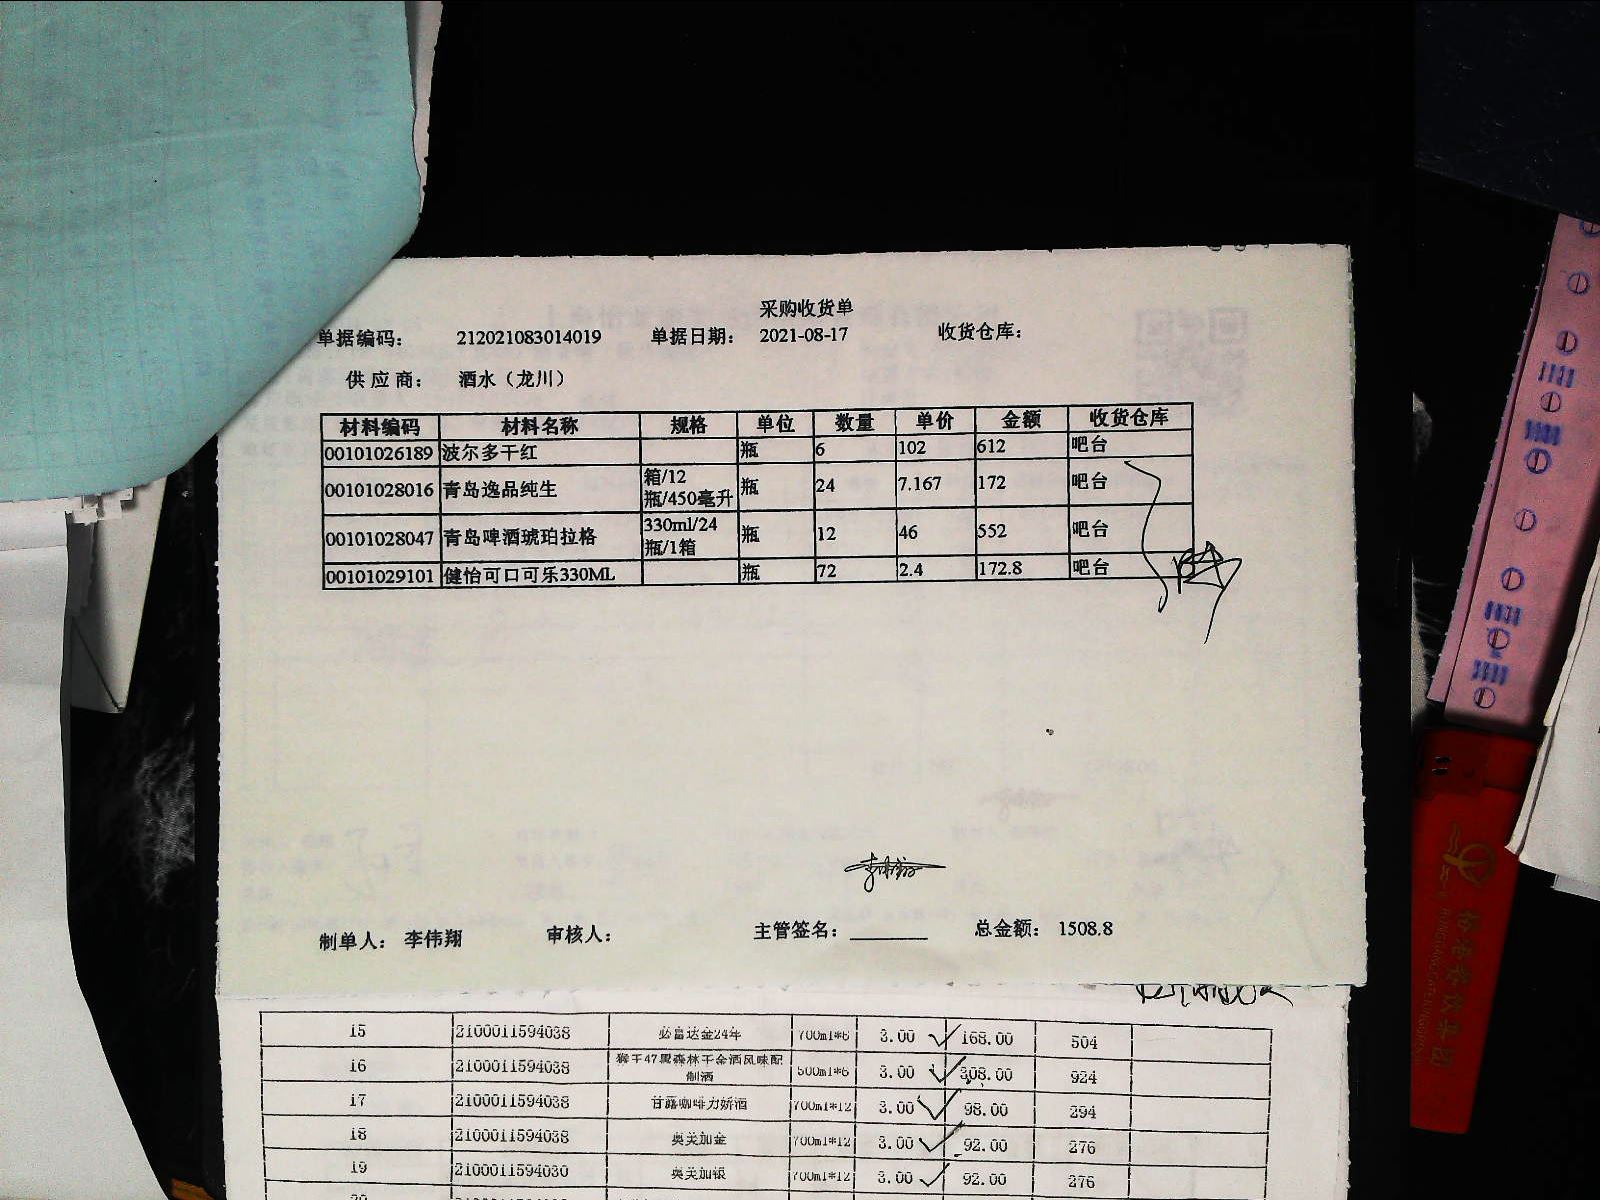 采购收货单
单据编码： 212021083014019 单据日期： 2021-08-17 收货仓库：
供 应 商： 酒水（龙川）
材料编码 材料名称 规格 单位 数量 单价 金额 收货仓库
00101026189 波尔多干红 瓶 6 102 612 吧台
00101028016 青岛逸品纯生 箱/12瓶/450毫升 瓶 24 7.167 172 吧台
00101028047 青岛啤酒琥珀拉格 330ml/24瓶/1箱 瓶 12 46 552 吧台
00101029101 健怡可口可乐330ML 瓶 72 2.4 172.8 吧台
制单人： 李伟翔 审核人： 主管签名： 总金额： 1508.8
15 2100011594038 必富达金24年 700ml*6 3.00 168.00 504
16 2100011594038 猴王47黑森林干金酒风味配制酒 500ml*6 3.00 308.00 924
17 2100011594038 甘露咖啡力娇酒 700ml*12 3.00 98.00 294
18 2100011594038 奥美加金 700ml*12 3.00 92.00 276
19 2100011594030 奥美加银 700ml*12 3.00 92.00 276